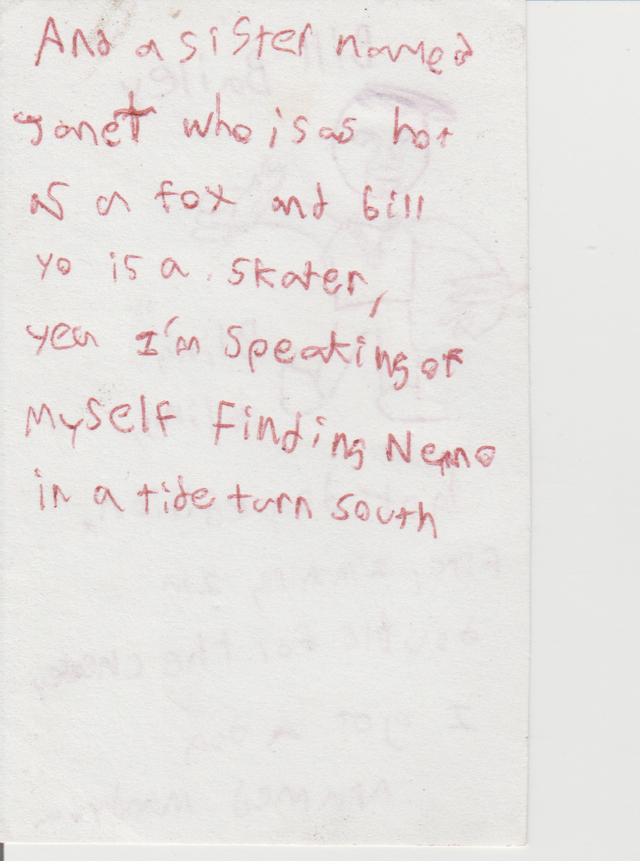 And a sister named
Janet who is as hot
as a fox and bill
yo is a skater,
yea I'm speaking of
myself finding Nemo
in a tide turn south